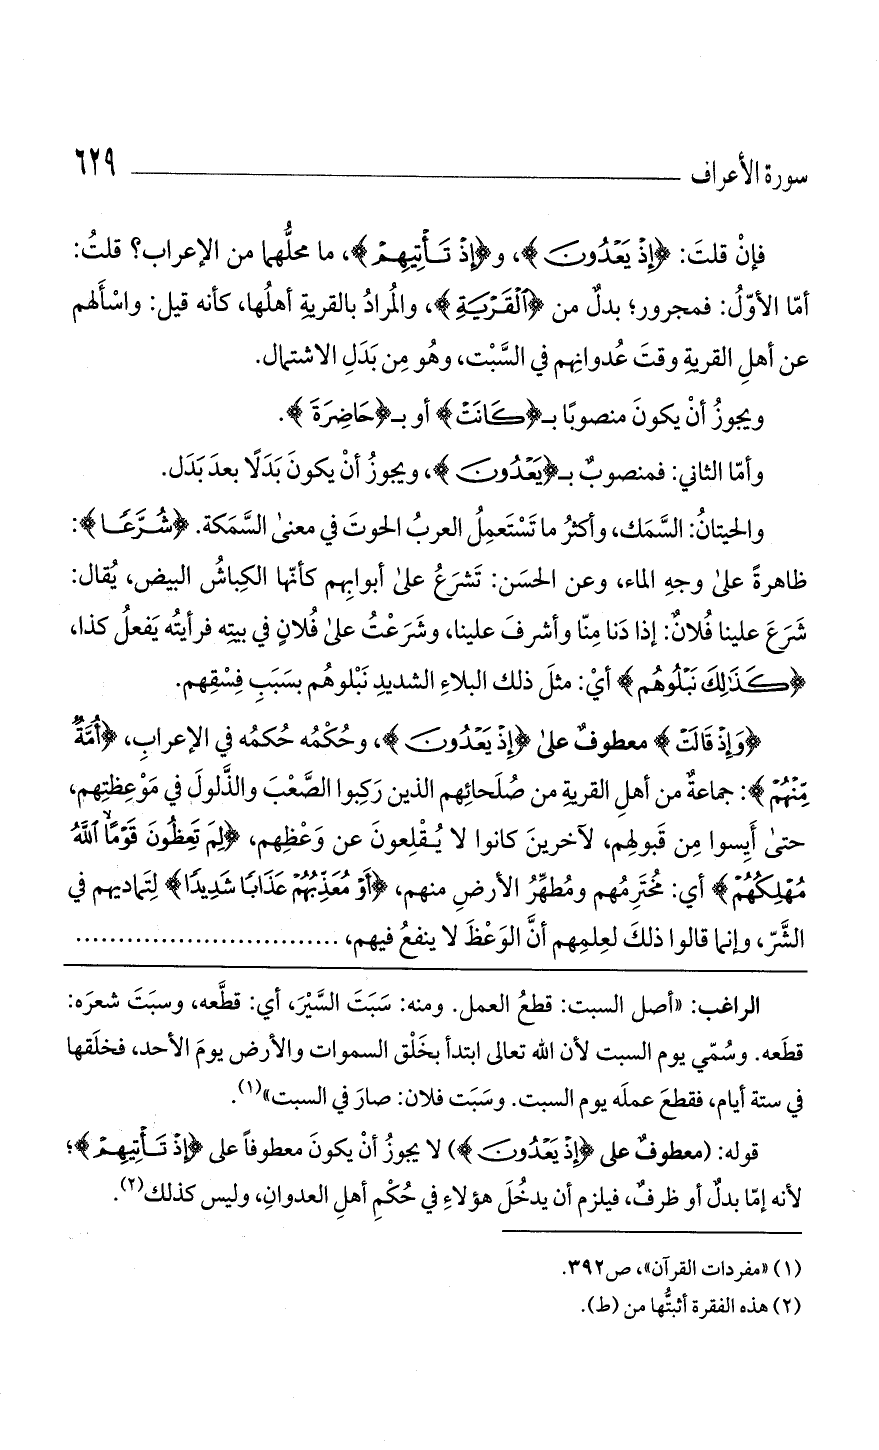 سورة الأعراف ٦٢٩
فإنْ قلتَ: ﴿إِذْ يَعْدُونَ﴾، و﴿إِذْ تَأْتِيهِمْ﴾، ما محلُّهما من الإعراب؟ قلتُ:
أمّا الأوّلُ: فمجرور؛ بدلٌ من ﴿ٱلْقَرْيَةِ﴾، والمُرادُ بالقريةِ أهلُها، كأنه قيل: واسْألهم
عن أهلِ القريةِ وقتَ عُدوانِهم في السَّبْت، وهُو مِن بَدَلِ الاشتمال.
ويجوزُ أنْ يكونَ منصوبًا بـ﴿كَانَتْ﴾ أو بـ﴿حَاضِرَةَ﴾.
وأمّا الثاني: فمنصوبٌ بـ﴿يَعْدُونَ﴾، ويجوزُ أنْ يكونَ بَدَلًا بعدَ بَدَل.
والحيتانُ: السَّمَك، وأكثرُ ما تَسْتَعمِلُ العربُ الحوتَ في معنىٰ السَّمَكة. ﴿شُرَّعًا﴾:
ظاهرةً علىٰ وجهِ الماء، وعن الحسَن: تَشرَعُ علىٰ أبوابِهم كأنّها الكِباشُ البيض، يُقال:
شَرَعَ علينا فُلانٌ: إذا دَنا مِنّا وأشرفَ علينا، وشَرَعْتُ علىٰ فُلانٍ في بيتِه فرأيتُه يَفعلُ كذا،
﴿كَذَٰلِكَ نَبْلُوهُم﴾ أيْ: مثلَ ذلك البلاءِ الشديدِ نَبْلوهُم بسَبَبِ فِسْقِهم.
﴿وَإِذْ قَالَتْ﴾ معطوفٌ علىٰ ﴿إِذْ يَعْدُونَ﴾، وحُكْمُه حُكمُه في الإعرابِ، ﴿أُمَّةٌ
مِّنْهُمْ﴾: جماعةٌ من أهلِ القريةِ من صُلَحائِهم الذين رَكِبوا الصَّعْبَ والذَّلولَ في مَوْعِظتِهم،
حتىٰ أَيِسوا مِن قَبولِهم، لآخرينَ كانوا لا يُقْلِعونَ عن وَعْظِهم، ﴿لِمَ تَعِظُونَ قَوْمًا ۙ ٱللَّهُ
مُهْلِكُهُمْ﴾ أي: مُخْتَرِمُهم ومُطهِّرُ الأرضِ منهم، ﴿أَوْ مُعَذِّبُهُمْ عَذَابًا شَدِيدًا﴾ لتَماديهم في
الشَّرّ، وإنما قالوا ذلكَ لعِلمِهم أنَّ الوَعْظَ لا ينفعُ فيهم، ...............................
الراغب: «أصل السبت: قطعُ العمل. ومنه: سَبَتَ السَّيْرَ، أي: قطَّعه، وسبَتَ شعرَه:
قطَعه. وسُمّي يوم السبت لأن الله تعالى ابتدأ بخَلْق السموات والأرض يومَ الأحد، فخلَقها
في ستة أيام، فقطعَ عملَه يوم السبت. وسَبَت فلان: صارَ في السبت»(١).
قوله: (معطوفٌ على ﴿إِذْ يَعْدُونَ﴾) لا يجوزُ أنْ يكونَ معطوفاً على ﴿إِذْ تَأْتِيهِمْ﴾؛
لأنه إمّا بدلٌ أو ظرفٌ، فيلزم أن يدخُلَ هؤلاءِ في حُكْمِ أهلِ العدوانِ، وليس كذلك(٢).
(١) «مفردات القرآن»، ص٣٩٢.
(٢) هذه الفقرة أثبتُّها من (ط).